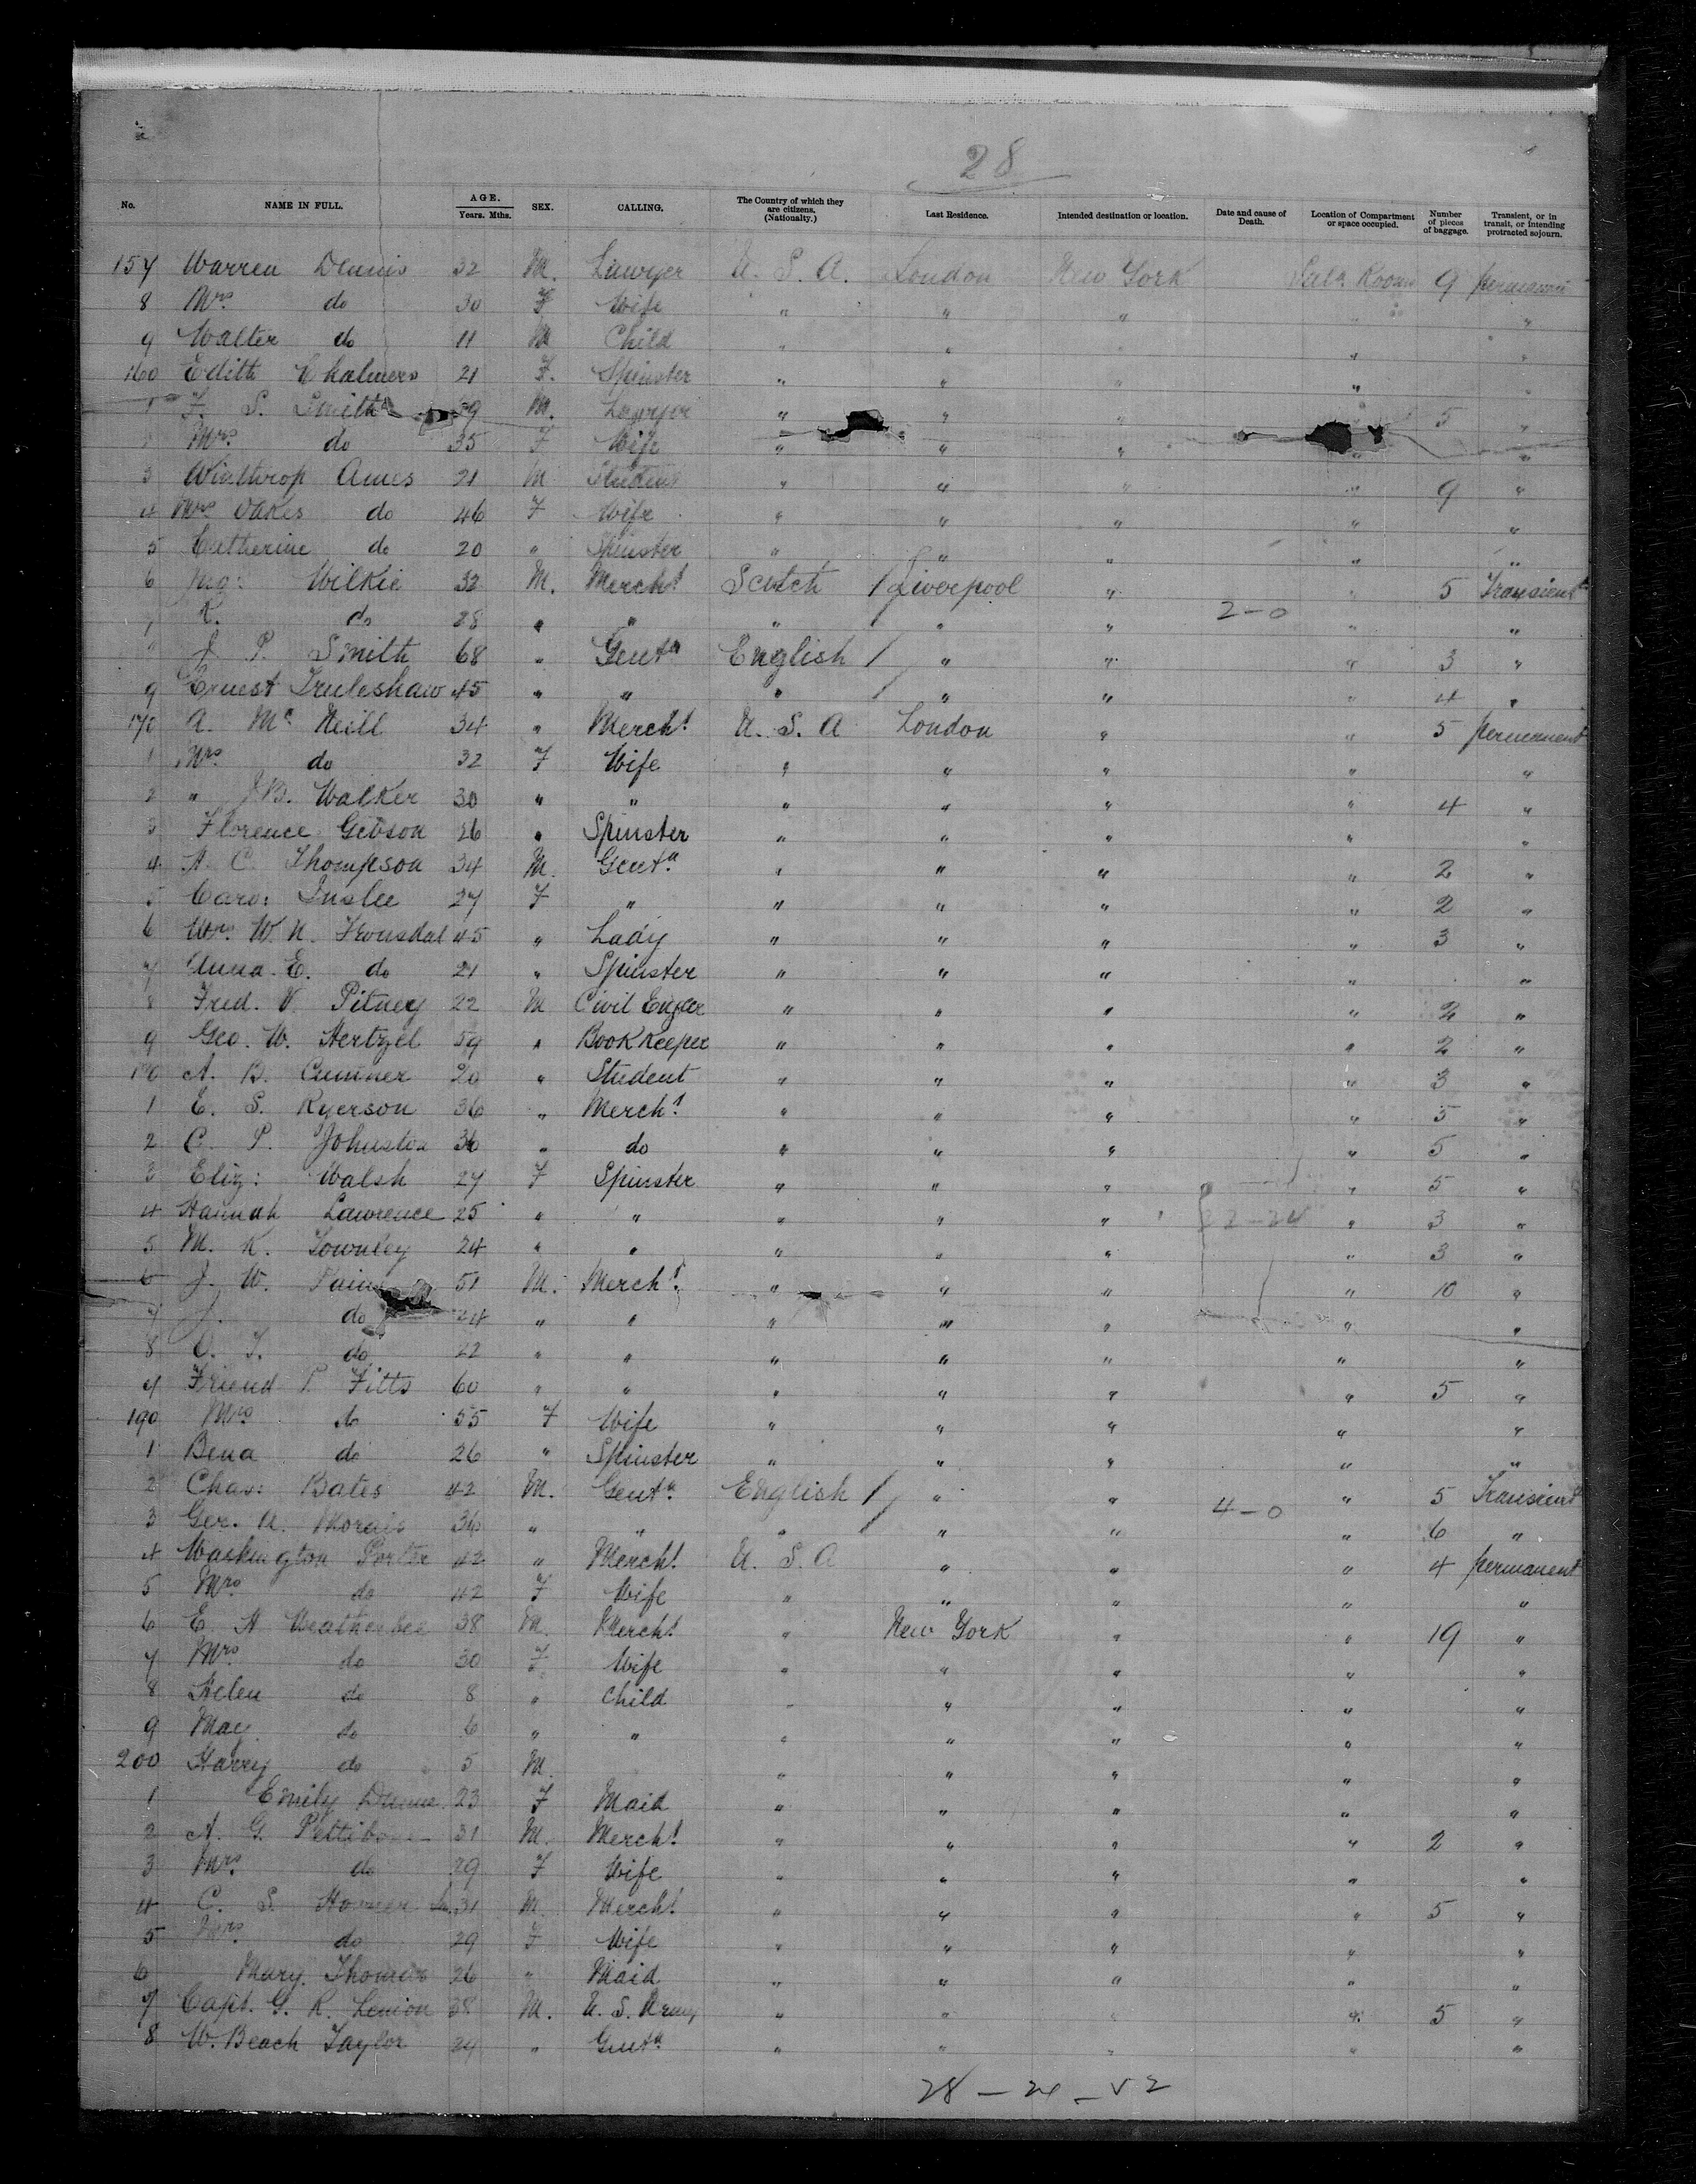 28
No. NAME IN FULL. AGE. Years. Mths. SEX. CALLING. The Country of which they are citizens. (Nationalty.) Last Residence. Intended destination or location. Date and cause of Death. Location of Compartment or space occupied. Number of pieces of baggage. Transient, or in transit, or intending protracted sojourn.
157 Warren Dennis 32 M. Lawyer U. S. A. London New York Rooms 9 permanent
8 Mrs do 30 F Wife " " " " "
9 Walter do 11 M Child " " " " "
160 Edith Chalmers 21 F. Spinster " " " " "
1 F. S. Smith 39 M. Lawyer " " " 5 "
Mrs do 35 F Wife " " " " "
3 Winthrop Ames 21 M Student " " " " 9 "
4 Mrs Oakes do 46 F Wife " " " " "
5 Catherine do 20 " Spinster " " " " "
6 Wilkie 32 M. Mercht Scotch / Liverpool " " 5 Transient
7 K. do 28 " " " " " 2-0 " "
J P. Smith 68 " Gentn English / " " " 3 "
9 Ernest 45 " " " / " " " 4 "
170 A. Mc Neill 34 " Mercht U. S. A London " " 5 permanent
1 Mrs do 32 F Wife " " " " "
2 " J.B. Walker 30 " " " " " " 4 "
3 Florence Gibson 26 " Spinster " " " " "
4 A. C. Thompson 34 M. Gentn " " " " 2 "
5 Caro: Inslee 27 F " " " " " 2 "
6 Mrs. W. N. 45 " Lady " " " " 3 "
7 Anna. E. do 21 " Spinster " " " " "
8 Fred. V Pitney 22 M Civil Enger " " " " 2 "
9 Geo. W. Hertzel 59 " Book Keeper " " " " 2 "
180 A. B. Cumner 20 " Student " " " " 3 "
1 E. S. Ryerson 36 " Mercht " " " " 5 "
2 C. P. Johnston 36 " do " " " " 5 "
3 Eliz: Walsh 27 F Spinster " " " " 5 "
4 Hannah Lawrence 25 " " " " " 2-24 " 3 "
5 M. K. Townley 24 " " " " " " 3 "
6 J. W. 51 M. Mercht " " " " 10 "
7 J. do 24 " " " " " " "
8 O. T. do 22 " " " " " " "
9 Friend P Fitts 60 " " " " " " 5 "
190 Mrs do 55 F Wife " " " " "
1 Bena do 26 " Spinster " " " " "
2 Chas: Bates 42 M. Gentn English / " " " 5 Transient
3 Geo. A. 36 " " " / " " 4-0 6 "
4 Washington Porter 42 " Mercht U. S. A " " " 4 permanent
5 Mrs do 42 F Wife " " " " "
6 E. A Weatherbee 38 M. Mercht " New York " " 19 "
7 Mrs do 30 F. Wife " " " " "
8 Helen do 8 " Child " " " " "
9 May do 6 " " " " " " "
200 Harry do 5 M. " " " " "
1 Emily 23 F Maid " " " " "
2 A. G. 31 M. Mercht " " " " 2 "
3 Mrs do 29 F Wife " " " " "
4 C. S. 31 M. Mercht " " " " 5 "
5 Mrs do 29 F Wife " " " " "
6 Mary Thomas 26 " Maid " " " " "
7 Capt. G. R. 38 M. U. S. Army " " " " 5 "
8 W. Beach Taylor 24 " Gentn " " " " "
28 - 24 - 52